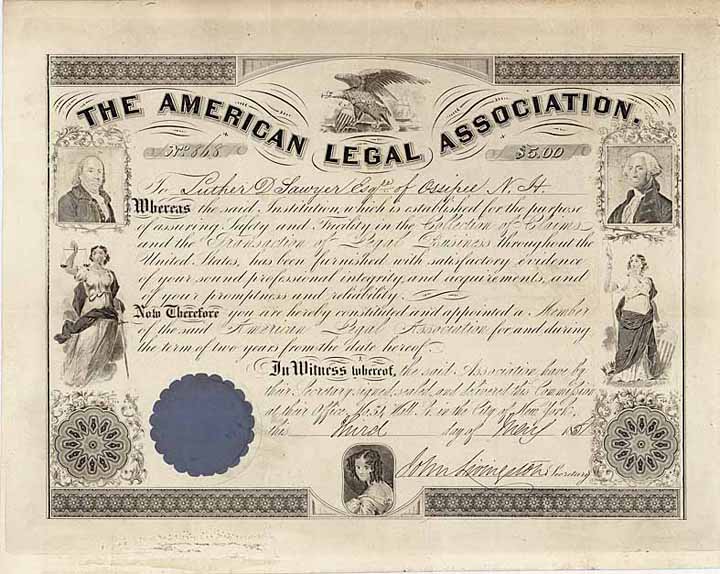 THE AMERICAN LEGAL ASSOCIATION.
No. 868 $5.00
To Luther D Sawyer Esqr. of Ossipee N. H.
Whereas the said Institution, which is established for the purpose
of assuring Safety and Facility in the Collection of Claims
and the Transaction of Legal Business throughout the
United States, has been furnished with satisfactory evidence
of your sound professional integrity, and acquirements, and
of your promptness and reliability.
Now Therefore you are hereby constituted and appointed a Member
of the said American Legal Association for and during
the term of two years from the date hereof.
In Witness whereof, the said Association have by
their Secretary signed, sealed, and delivered this Commission
at their Office No. 54 Wall St. in the City of New York.
this third day of 185
John Livingston Secretary